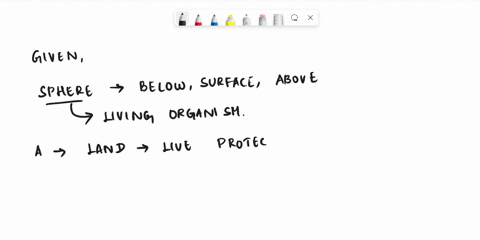 GIVEN,
SPHERE → BELOW, SURFACE, ABOVE
↳ LIVING ORGANISM.
A → LAND → LIVE PROTEC